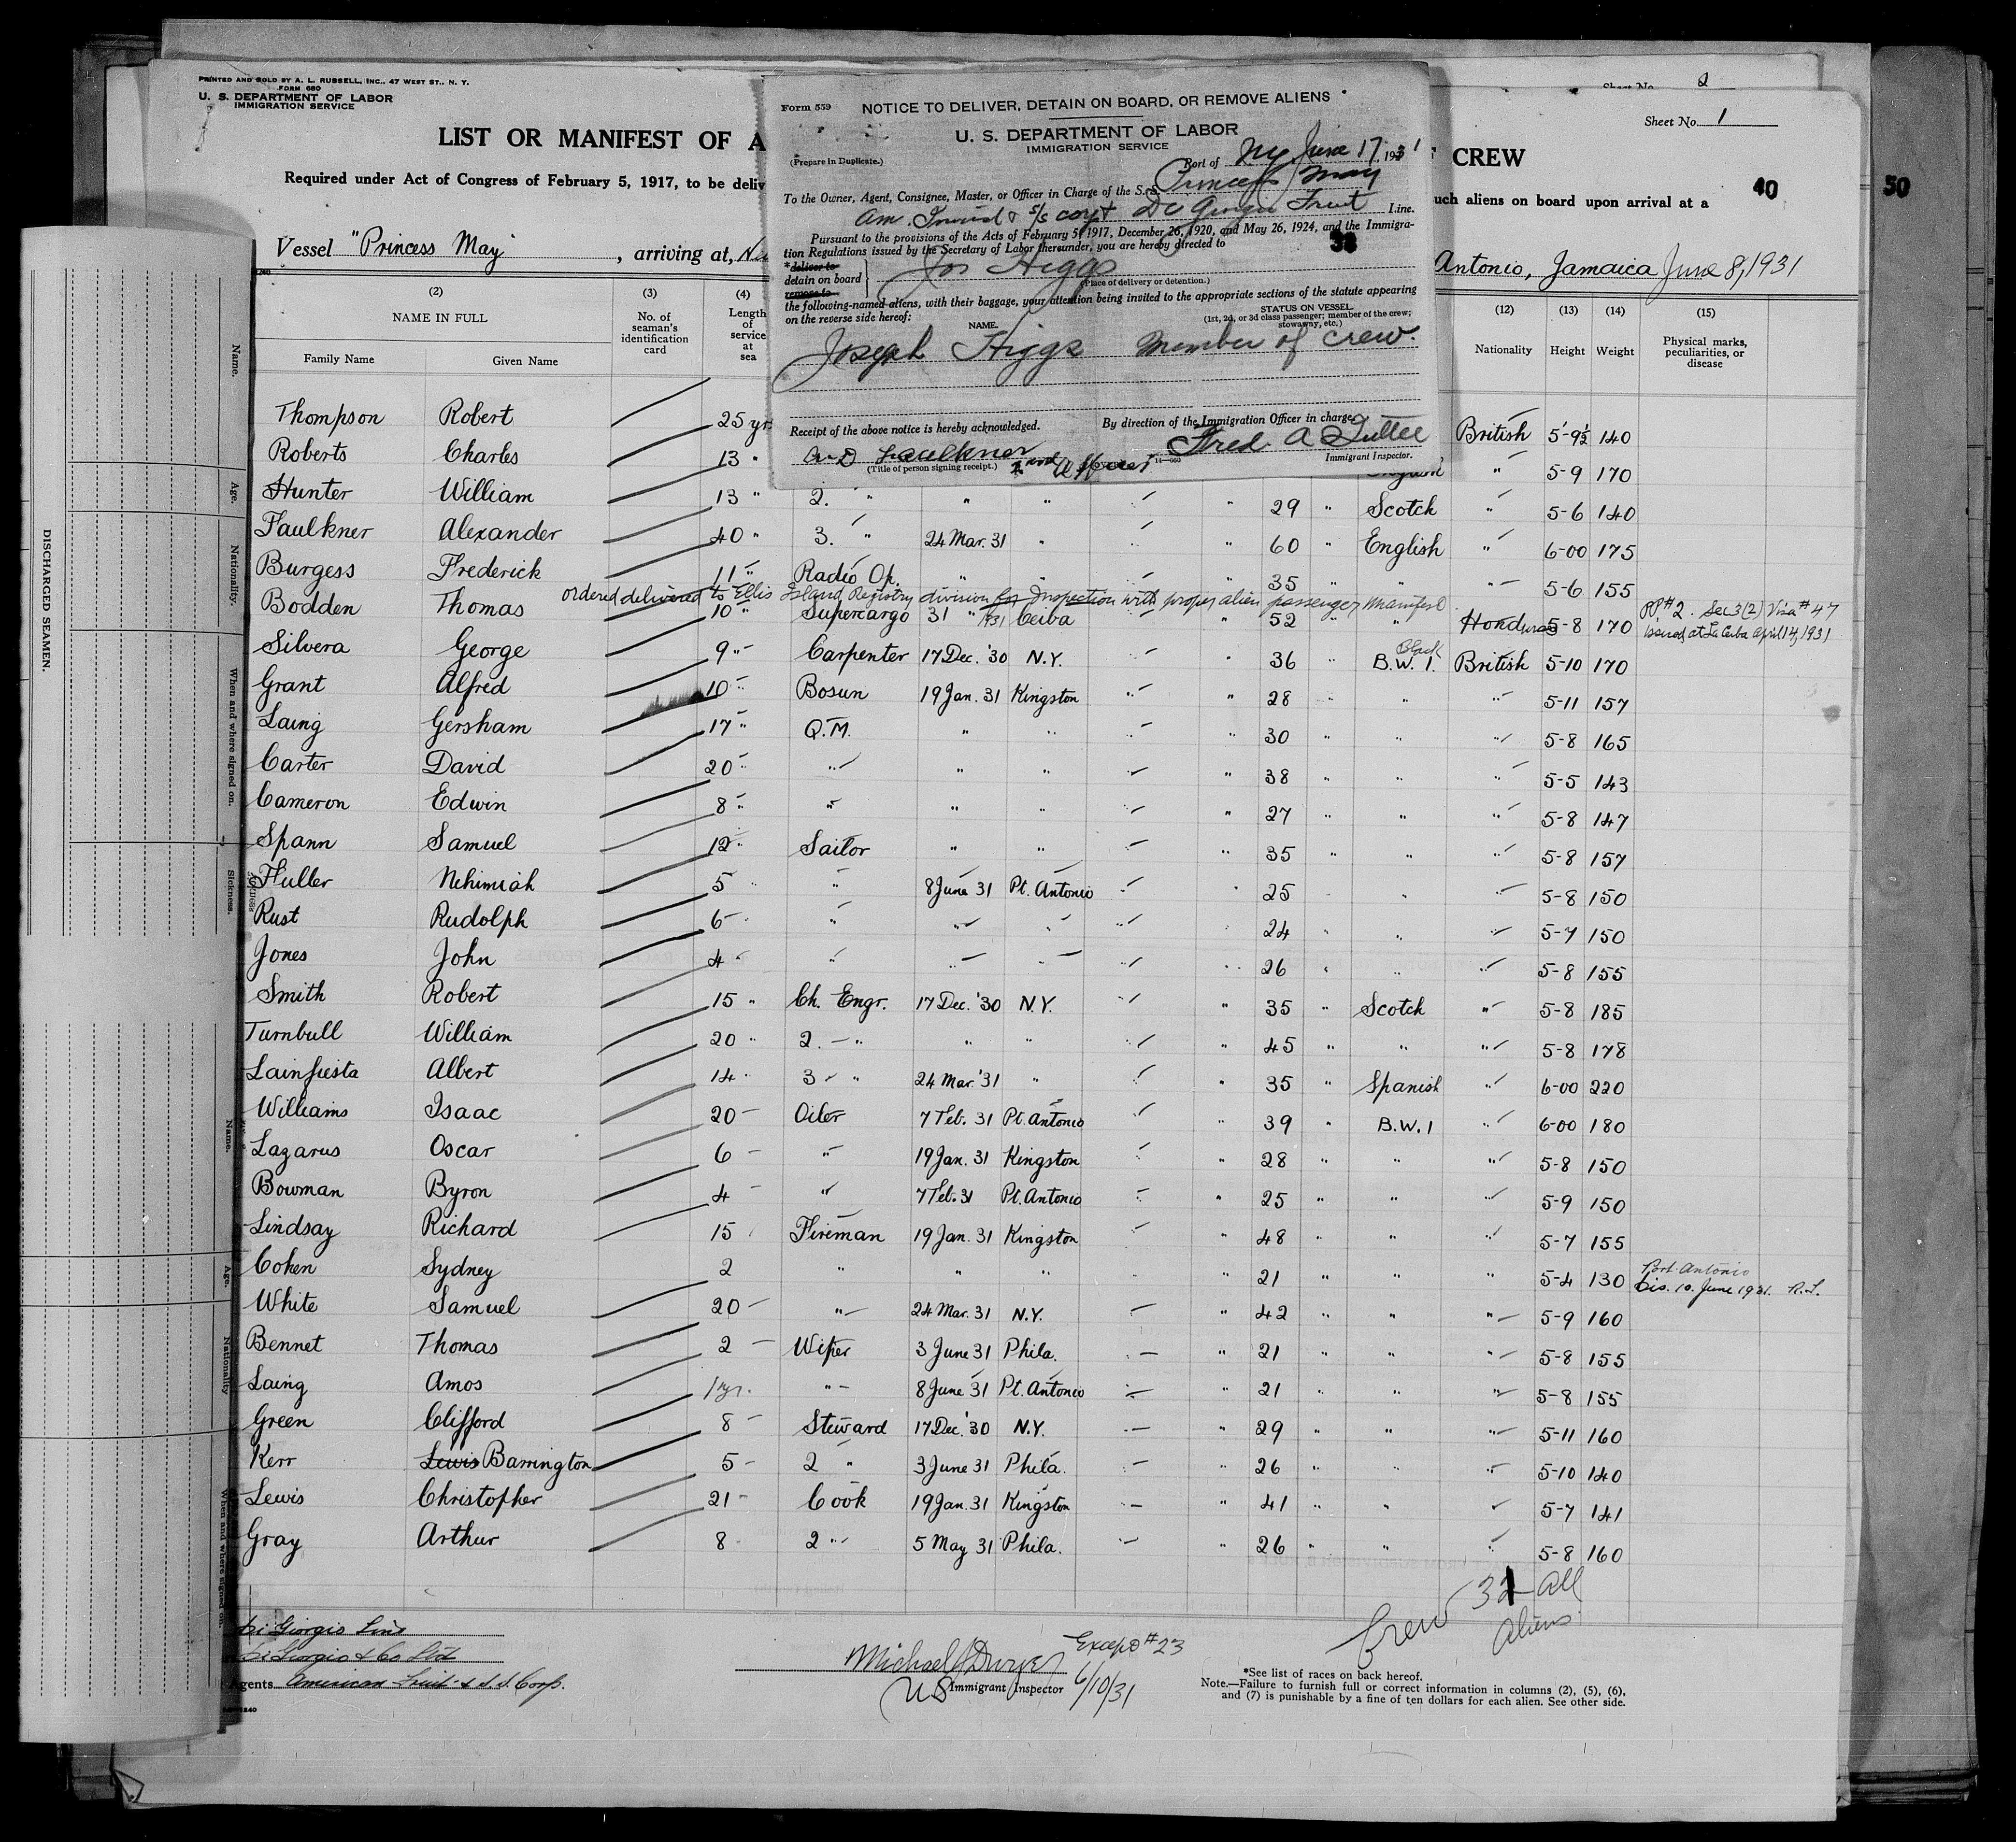 PRINTED AND SOLD BY A. L. RUSSELL, INC., 47 WEST ST., N. Y.
FORM 680
U. S. DEPARTMENT OF LABOR
IMMIGRATION SERVICE
Sheet No. 2
Sheet No. 1
LIST OR MANIFEST OF A
CREW
Required under Act of Congress of February 5, 1917, to be deliv
uch aliens on board upon arrival at a
40
50
Vessel "Princess May", arriving at,
Antonio, Jamaica June 8, 1931
Form 559
NOTICE TO DELIVER, DETAIN ON BOARD, OR REMOVE ALIENS
U. S. DEPARTMENT OF LABOR
IMMIGRATION SERVICE
(Prepare in Duplicate.)
Port of NY June 17, 1931
To the Owner, Agent, Consignee, Master, or Officer in Charge of the S.S. Princess May
Am. & S/S Corp + Fruit Line.
Pursuant to the provisions of the Acts of February 5, 1917, December 26, 1920, and May 26, 1924, and the Immigra-
tion Regulations issued by the Secretary of Labor thereunder, you are hereby directed to
38
*deliver to
detain on board
remove to
Jos Higgs
(Place of delivery or detention.)
the following-named aliens, with their baggage, your attention being invited to the appropriate sections of the statute appearing
on the reverse side hereof:
NAME.
STATUS ON VESSEL
(1st, 2d, or 3d class passenger; member of the crew;
stowaway, etc.)
Joseph Higgs Member of Crew.
Receipt of the above notice is hereby acknowledged.
By direction of the Immigration Officer in charge.
Faulkner
(Title of person signing receipt.) 2nd Officer
Fred. A Tuttle
Immigrant Inspector.
(2) (3) (4) (12) (13) (14) (15)
NAME IN FULL
Family Name Given Name
No. of seaman's identification card
Length of service at sea
Nationality Height Weight
Physical marks, peculiarities, or disease
Thompson Robert 25 yr. British 5'-9½ 140
Roberts Charles 13 " " 5-9 170
Hunter William 13 " 2. " " " " 29 " Scotch " 5-6 140
Faulkner Alexander 40 " 3. " 24 Mar. 31 " " 60 " English " 6-00 175
Burgess Frederick 11 " Radio Op. " " " 35 " " " 5-6 155
ordered delivered to Ellis Island Registry division for Inspection with proper alien passenger manifest.
Bodden Thomas 10 " Supercargo 31 " 1931 Ceiba " 52 " " Honduras 5-8 170 PP#2. Sec 3(2) Visa #47
issued at La Ceiba April 14, 1931
Silvera George 9 " Carpenter 17 Dec. '30 N.Y. " 36 " Black B.W.I. British 5-10 170
Grant Alfred 10 " Bosun 19 Jan. 31 Kingston " " 28 " " " 5-11 157
Laing Gersham 17 " Q.M. " " " " 30 " " " 5-8 165
Carter David 20 " " " " " " 38 " " " 5-5 143
Cameron Edwin 8 " " " " " " 27 " " " 5-8 147
Spann Samuel 12 " Sailor " " " " 35 " " " 5-8 157
Fuller Nehimiah 5 " " 8 June 31 Pt. Antonio " " 25 " " " 5-8 150
Rust Rudolph 6 " " " " " " 24 " " " 5-7 150
Jones John 4 " " " " " " 26 " " " 5-8 155
Smith Robert 15 " Ch. Engr. 17 Dec. '30 N.Y. " " 35 " Scotch " 5-8 185
Turnbull William 20 " 2. " " " " " 45 " " " 5-8 178
Lainfiesta Albert 14 " 3 " 24 Mar. '31 " " " 35 " Spanish " 6-00 220
Williams Isaac 20 Oiler 7 Feb. 31 Pt. Antonio " " 39 " B.W.I " 6-00 180
Lazarus Oscar 6 " 19 Jan. 31 Kingston " " 28 " " " 5-8 150
Bowman Byron 4 " 7 Feb. 31 Pt. Antonio " " 25 " " " 5-9 150
Lindsay Richard 15 Fireman 19 Jan. 31 Kingston " " 48 " " " 5-7 155
Cohen Sydney 2 " " " " " 21 " " " 5-4 130 Port Antonio
Dis. 10. June 1931. R.L.
White Samuel 20 " 24 Mar. 31 N.Y. " " 42 " " " 5-9 160
Bennet Thomas 2 Wiper 3 June 31 Phila. " " 21 " " " 5-8 155
Laing Amos 1 yr. " 8 June 31 Pt. Antonio " " 21 " " " 5-8 155
Green Clifford 8 Steward 17 Dec. '30 N.Y. " " 29 " " " 5-11 160
Kerr Lewis Barrington 5 2 " 3 June 31 Phila. " " 26 " " " 5-10 140
Lewis Christopher 21 Cook 19 Jan. 31 Kingston " " 41 " " " 5-7 141
Gray Arthur 8 2 " 5 May 31 Phila. " " 26 " " " 5-8 160
Crew 31 All
Aliens
Di Giorgio Line
Di Giorgio & Co Ltd
Agents American Fruit & S.S. Corp.
Michael J Dwyer
US Immigrant Inspector
Except #23
6/10/31
*See list of races on back hereof.
Note.—Failure to furnish full or correct information in columns (2), (5), (6),
and (7) is punishable by a fine of ten dollars for each alien. See other side.
DISCHARGED SEAMEN.
Name.
Age.
Nationality.
When and where signed on.
Sickness.
Name.
Age.
Nationality
When and where signed on.